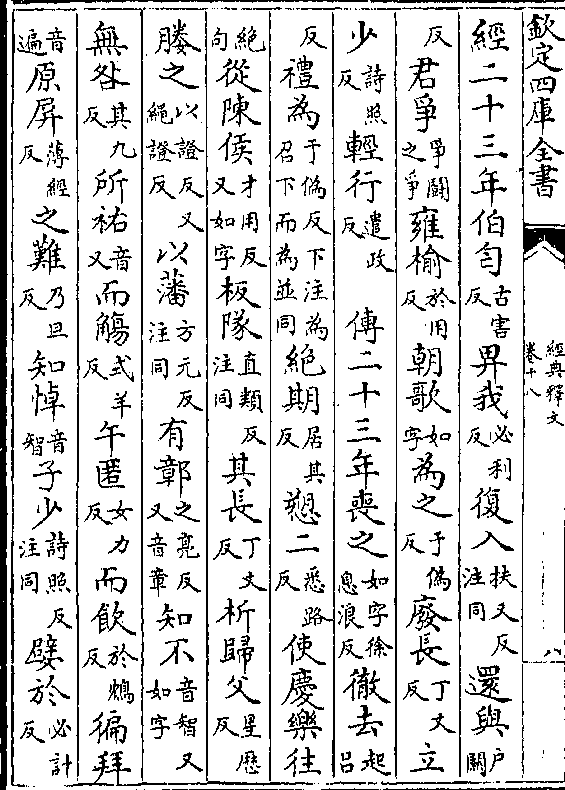 欽定四庫全書
經典釋文
卷十八
八
經二十三年伯匄古害反畀我必利反復入扶又反注同還與户關
反君爭爭鬭之爭雍榆於用反朝歌如字為之于偽反廢長丁丈反立
少詩照反輕行遣政反 傳二十三年喪之如字徐息浪反徹去起呂
反禮為于偽反下注為召下而為並同絶期居其反愬二悉路反使慶樂往
絶句從陳侯才用反又如字板隊直類反注同其長丁丈反析歸父星歴反
媵之以證反又繩證反以藩方元反注同有鄣之亮反又音章知不音智又如字
無咎其九反所祐音又而觴式羊反午匿女力反而飲於鴆反徧拜
音遍原屏薄經反之難乃旦反知悼音智子少詩照反注同嬖於必計反